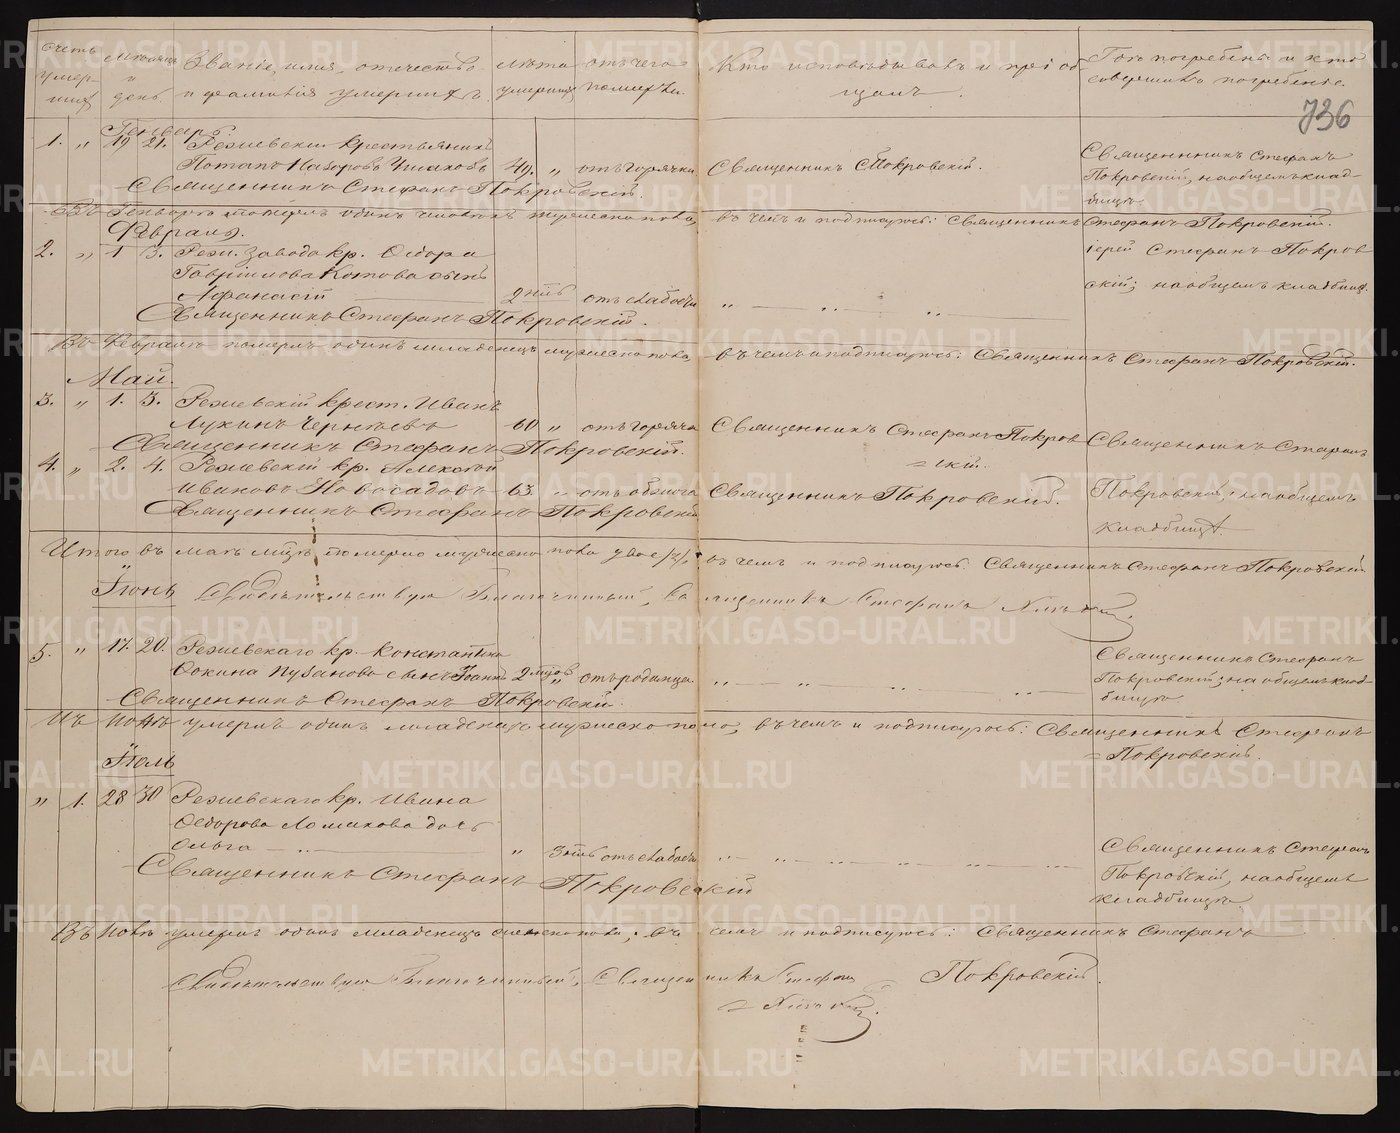 Счетъ умер- шихъ
Мѣсяцъ и день.
Званіе, имя, отечество и фамилія умершихъ.
Лѣта умершихъ
отъ чего померли.
Кто исповѣдывалъ и пріобщалъ.
Гдѣ погребены и кто совершилъ погребеніе.
736
Генварь.
1. " 19 21. Режевскій крестьянинъ
Потапъ 49. " отъ горячки Священникъ С Покровскій. Священникъ Стефанъ
Покровскій, на общемъ клад-
бищѣ.
Священникъ Стефанъ Покровскій.
Въ Генварѣ померъ одинъ человѣкъ мужеска пола, въ чемъ и подписуюсь: Священникъ Стефанъ Покровскій.
Февраль.
2. " 1 3. Реж. завода кр. Ѳедора
Гавріилова Котова сынъ
Афанасій 2 отъ слабости " " " іерей Стефанъ Покров
скій; на общемъ кладбищѣ.
Священникъ Стефанъ Покровскій.
Въ Февралѣ померъ одинъ младенецъ мужеска пола, въ чемъ и подписуюсь: Священникъ Стефанъ Покровскій.
Май.
3. " 1. 3. Режевскій крест. Иванъ
Лукинъ Чернѣевъ 60 " отъ горячки Священникъ Стефанъ Покров
скій.
Священникъ Стефанъ Покровскій.
4. " 2. 4. Режевскій кр. Алексѣй
Ивановъ Новосадовъ 63 " Священникъ Покровскій. Священникъ Стефанъ
Покровскій, на общемъ
кладбищѣ.
Священникъ Стефанъ Покровскій
Итого въ маѣ м-цѣ померло мужеска пола двое /2/. въ чемъ и подписуюсь Священникъ Стефанъ Покровскій
Іюнь
Свидѣтельствую Благочинный, Священникъ Стефанъ
5. " 17. 20. Режевскаго кр. Константина
Ѳокина сынъ Іоаннъ 2 мцов отъ родимца. " " " Священникъ Стефанъ
Покровскій; на общемъ клад-
бищѣ
Священникъ Стефанъ Покровскій.
Въ Іюнѣ умеръ одинъ младенецъ мужеска пола, въ чемъ и подписуюсь: Священникъ Стефанъ
Покровскій
Іюль
" 1. 28 30 Режевскаго кр. Ивана
Ѳедорова Ломакова дочь
Ольга " " 3 отъ слабости " " " Священникъ Стефанъ
Покровскій, на общемъ
кладбищѣ.
Священникъ Стефанъ Покровскій
Въ Іюлѣ умеръ одинъ младенецъ женска пола, въ чемъ и подписуюсь: Священникъ Стефанъ
Покровскій.
Свидѣтельствую Благочинный, Священникъ Стефанъ
METRIKI.GASO-URAL.RU